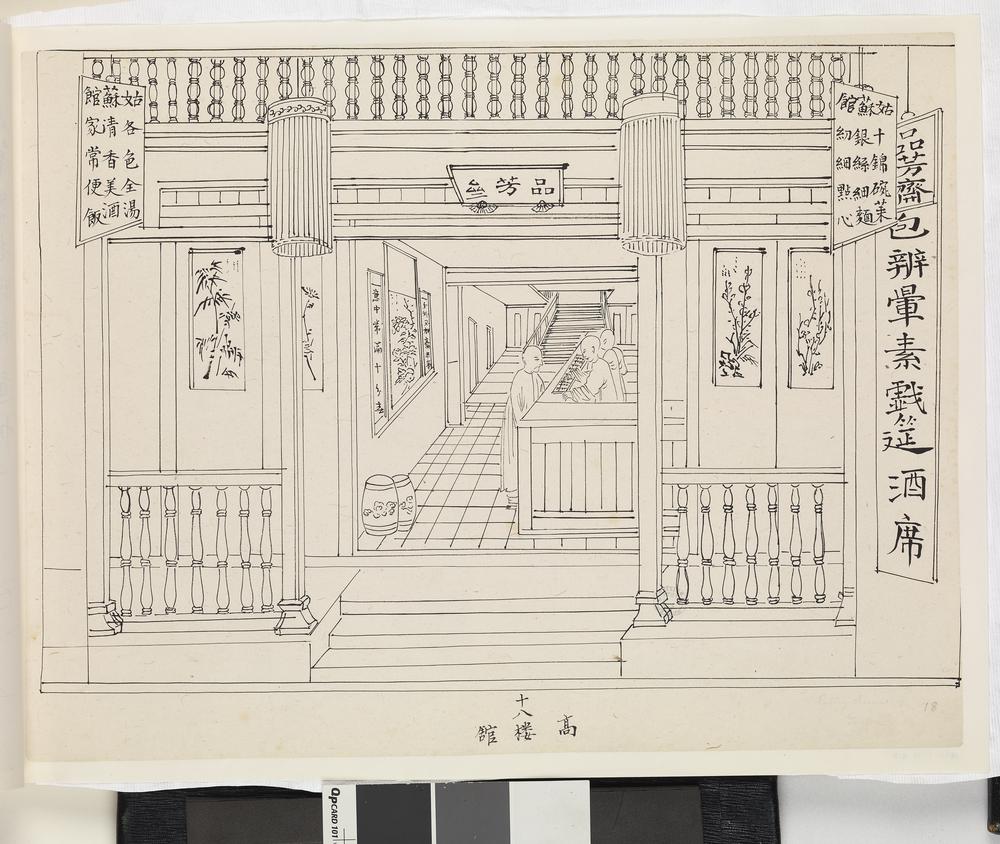 品芳齋包辨暈素戲筵酒席
姑蘇館
十錦碗菜
銀絲細麵
細點心
品芳亝
姑蘇館
各色全湯
清香美酒
家常便飯
十八
高楼舘
18
QPCARD 101